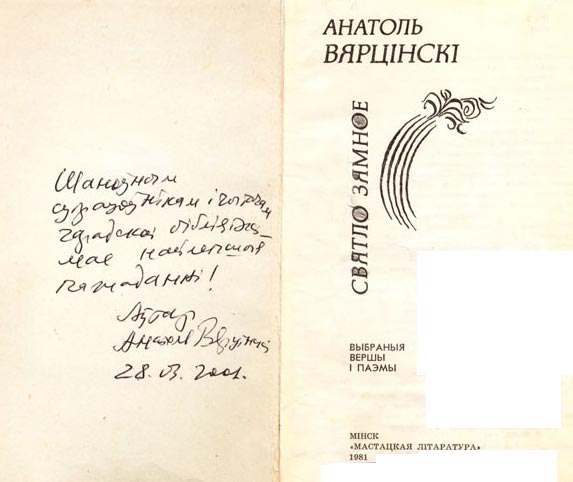 Шаноўным
супрацоўнікам і чытачам
гарадской бібліятэкі –
мае найлепшыя
пажаданні!
Аўтар
Анатоль Вярцінскі
28.03.2001.
АНАТОЛЬ
ВЯРЦІНСКІ
СВЯТЛО ЗЯМНОЕ
ВЫБРАНЫЯ
ВЕРШЫ
І ПАЭМЫ
МІНСК
«МАСТАЦКАЯ ЛІТАРАТУРА»
1981